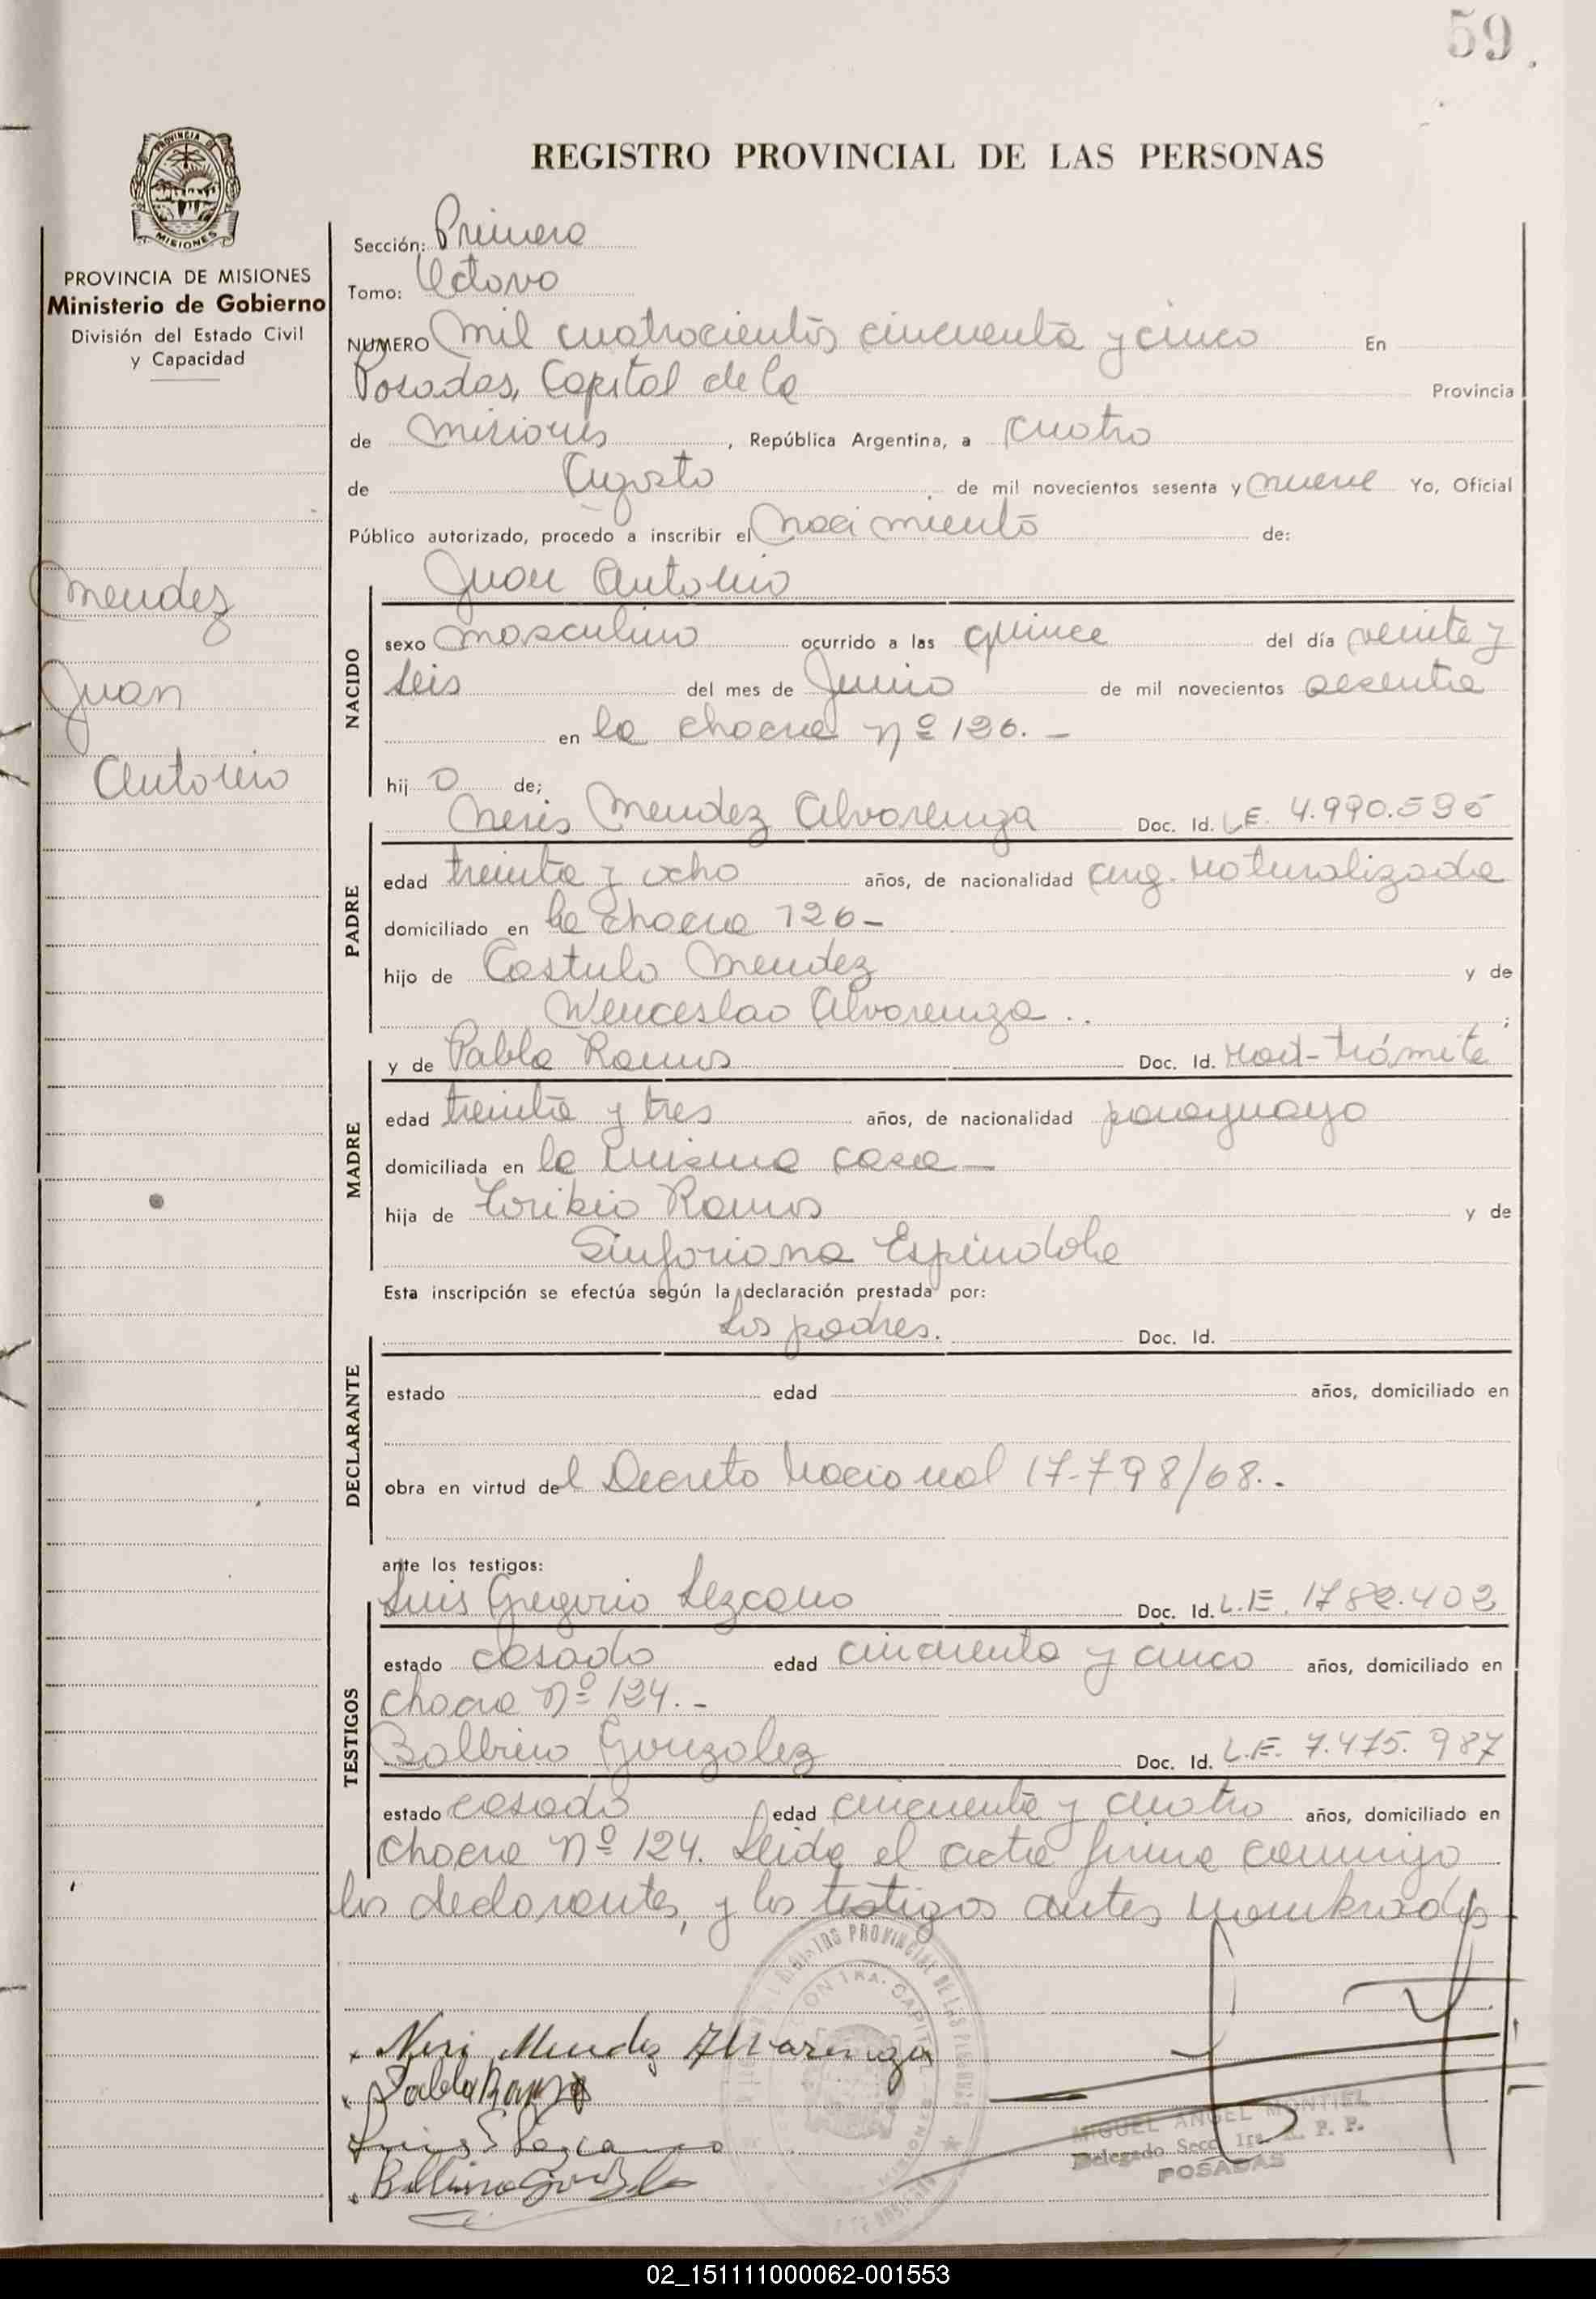 59.
PROVINCIA DE
MISIONES
PROVINCIA DE MISIONES
Ministerio de Gobierno
División del Estado Civil
y Capacidad
Mendez
Juan
Antonio
REGISTRO PROVINCIAL DE LAS PERSONAS
Sección: Primera
Tomo: Octavo
NUMERO Mil cuatrocientos cincuenta y cinco En
Posadas, Capital de la Provincia
de Misiones, República Argentina, a cuatro
de Agosto de mil novecientos sesenta y nueve Yo, Oficial
Público autorizado, procedo a inscribir el nacimiento de:
Juan Antonio
NACIDO
sexo masculino ocurrido a las quince del día veinte y
seis del mes de Junio de mil novecientos sesenta
en la chacra nº 126. -
hij o de;
Neris Mendez Alvarenga Doc. Id. L.E. 4.990.595
PADRE
edad treinta y ocho años, de nacionalidad arg. naturalizado
domiciliado en la chacra 126-
hijo de Castulo Mendez y de
Wenceslao Alvarenga ..;
y de Pabla Ramos Doc. Id. trámite
MADRE
edad treinta y tres años, de nacionalidad paraguaya
domiciliada en la misma casa -
hija de Toribio Ramos y de
Sinforiana Espíndola
Esta inscripción se efectúa según la declaración prestada por:
los padres. Doc. Id.
DECLARANTE
estado edad años, domiciliado en
obra en virtud del Decreto Nacional 17.798/68.-
ante los testigos:
Luis Gregorio Lezcano Doc. Id. L.E. 1782.402
TESTIGOS
estado casado edad cincuenta y cinco años, domiciliado en
chacra Nº 124. -
Balbino Gonzalez Doc. Id. L.E. 7.475.987
estado casado edad cincuenta y cuatro años, domiciliado en
chacra Nº 124. Leida el acta firma conmigo
los declarantes, y los testigos antes nombrados
Neri Mendez Alvarenga
Pabla Ramos
Luis G Lezcano
Balbino Gonzalez
MIGUEL ANGEL MONTIEL
Delegado Secc. 1ra. R. P. P.
POSADAS
02_151111000062-001553